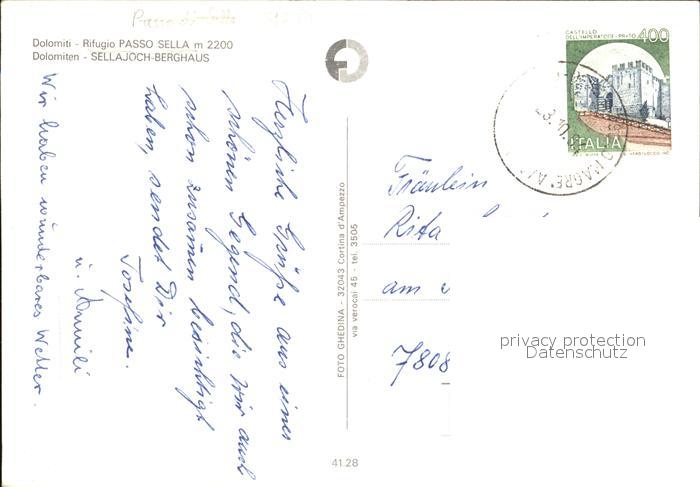 Passo di Sella
Dolomiti - Rifugio PASSO SELLA m 2200
Dolomiten - SELLAJOCH-BERGHAUS
Herzliche Grüße aus einer
schönen Gegend, die wir auch
schon zusamen besichtigt
haben, sendet Dir
Josefine.
u. Annili
Wir haben wunderbares Wetter.
FOTO GHEDINA - 32043 Cortina d'Ampezzo
via verocai 45 - tel. 3505
41.28
CASTELLO
DELL'IMPERATORE-PRATO
400
ITALIA
Fräulein
Rita
am
7808
privacy protection
Datenschutz